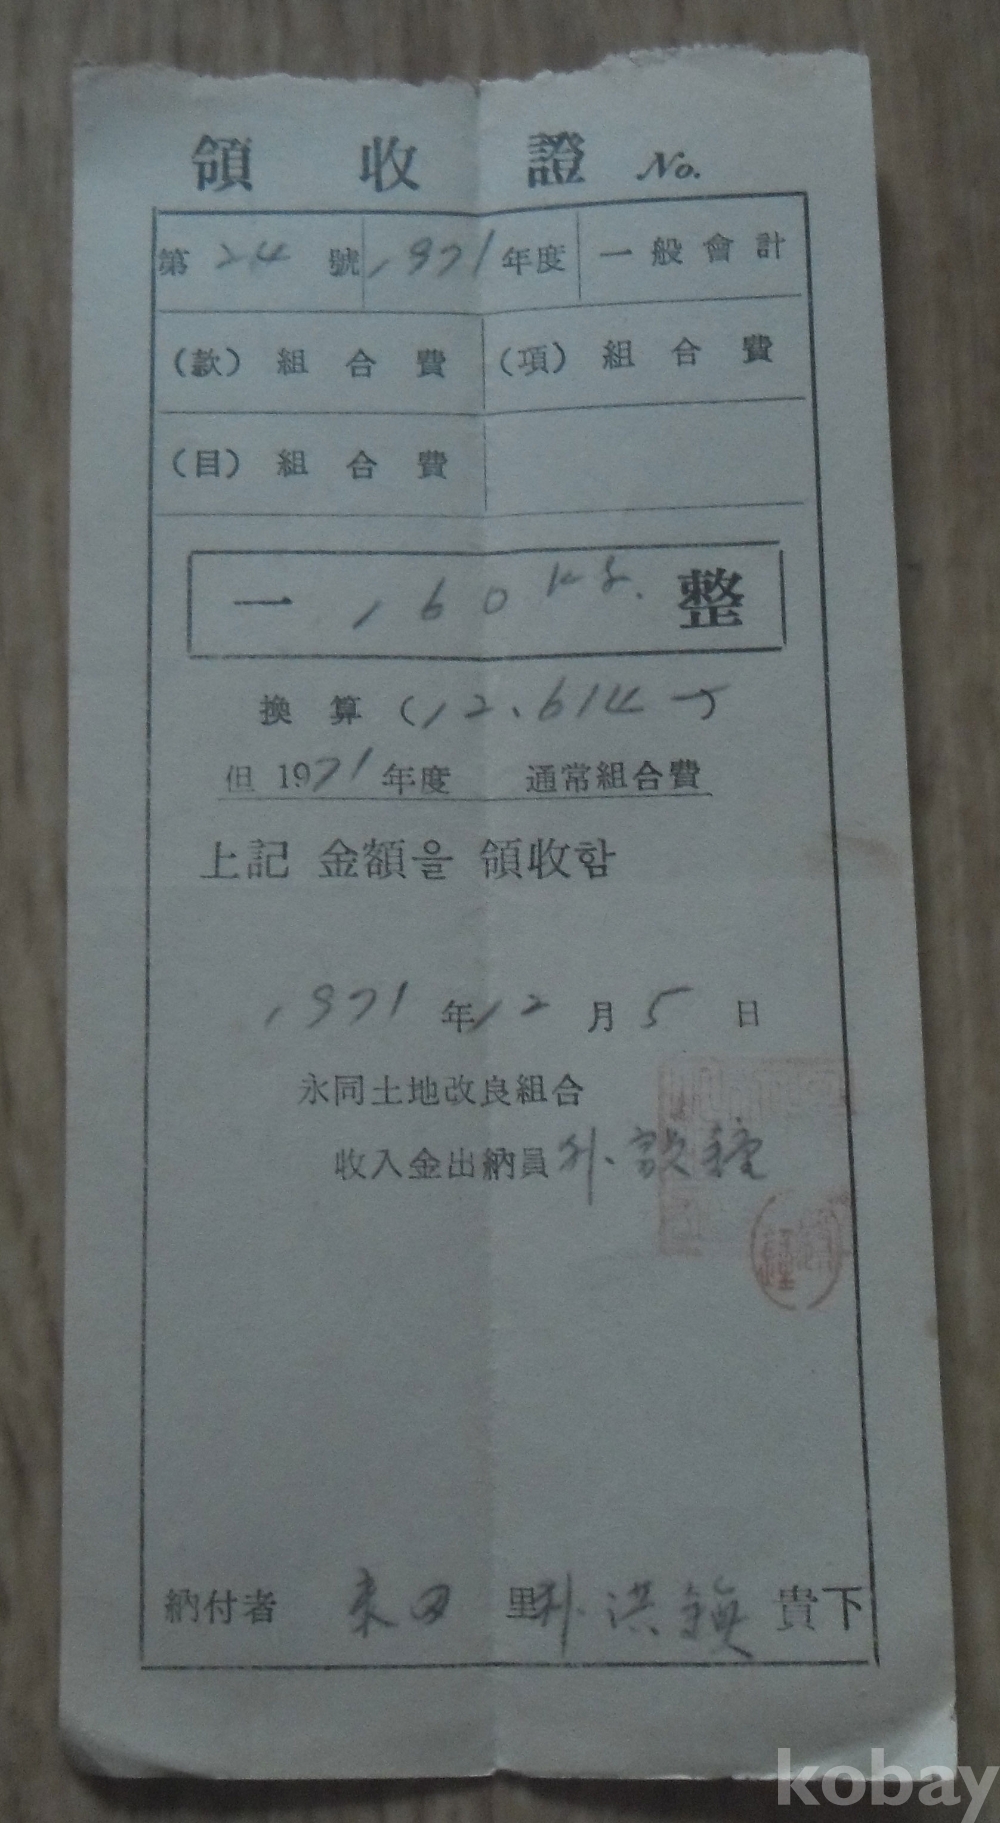 領 收 證 No.
第 24 號 1971 年度 一般會計
(款) 組合費 (項) 組合費
(目) 組合費
一 160kg. 整
換算 (12,614-)
但 1971年度 通常組合費
上記 金額을 領收함
1971 年 12 月 5 日
永同土地改良組合
收入金出納員 朴 鍾
納付者 田 里 朴洪鎮 貴下
kobay